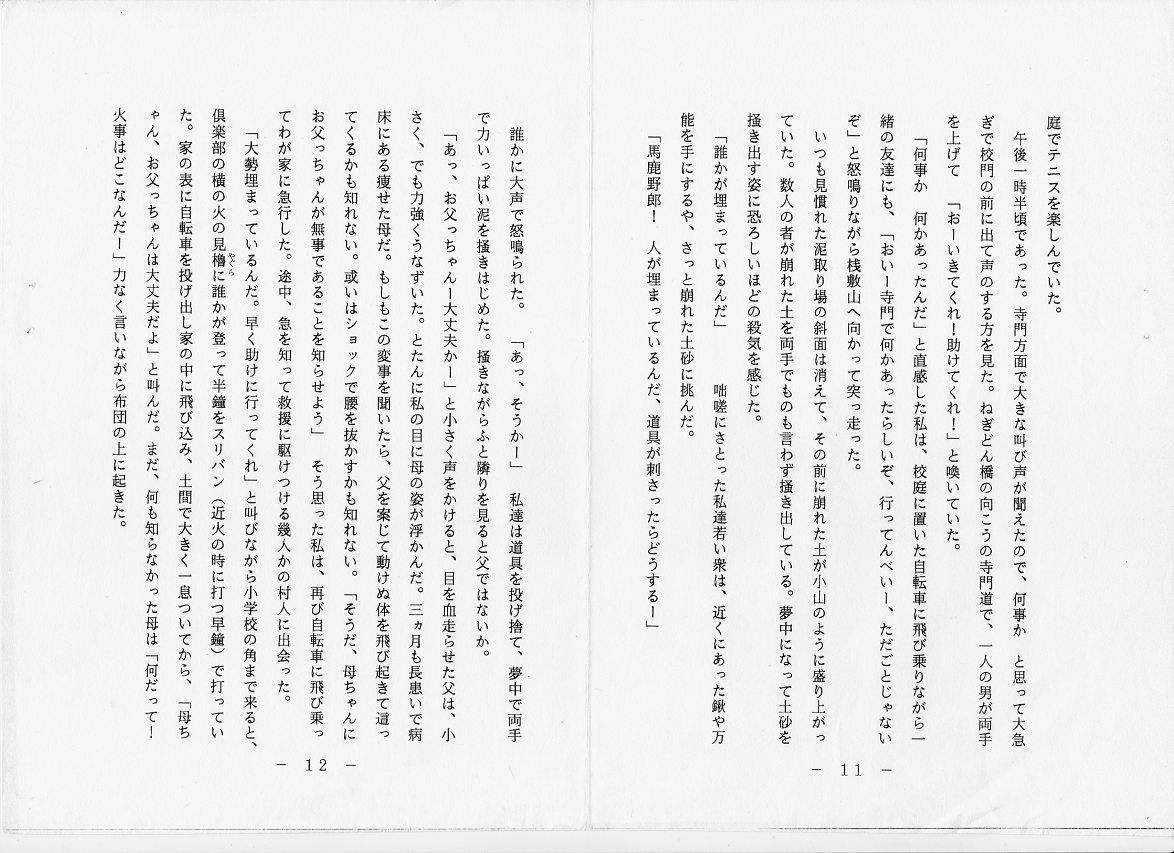 庭でテニスを楽しんでいた。
午後一時半頃であった。寺門方面で大きな叫び声が聞えたので、何事か　と思って大急
ぎで校門の前に出て声のする方を見た。ねぎどん橋の向こうの寺門道で、一人の男が両手
を上げて　「おーいきてくれ！助けてくれ！」と喚いていた。
「何事か　何かあったんだ」と直感した私は、校庭に置いた自転車に飛び乗りながら一
緒の友達にも、「おいー寺門で何かあったらしいぞ、行ってんべいー、ただごとじゃない
ぞ」と怒鳴りながら桟敷山へ向かって突っ走った。
いつも見慣れた泥取り場の斜面は消えて、その前に崩れた土が小山のように盛り上がっ
ていた。数人の者が崩れた土を両手でものも言わず掻き出している。夢中になって土砂を
掻き出す姿に恐ろしいほどの殺気を感じた。
「誰かが埋まっているんだ」　咄嗟にさとった私達若い衆は、近くにあった鍬や万
能を手にするや、さっと崩れた土砂に挑んだ。
「馬鹿野郎！　人が埋まっているんだ、道具が刺さったらどうするー」
－ 11 －
誰かに大声で怒鳴られた。　「あっ、そうかー」　私達は道具を投げ捨て、夢中で両手
で力いっぱい泥を掻きはじめた。掻きながらふと隣りを見ると父ではないか。
「あっ、お父っちゃんー大丈夫かー」と小さく声をかけると、目を血走らせた父は、小
さく、でも力強くうなずいた。とたんに私の目に母の姿が浮かんだ。三ヵ月も長患いで病
床にある痩せた母だ。もしもこの変事を聞いたら、父を案じて動けぬ体を飛び起きて這っ
てくるかも知れない。或いはショックで腰を抜かすかも知れない。「そうだ、母ちゃんに
お父っちゃんが無事であることを知らせよう」　そう思った私は、再び自転車に飛び乗っ
てわが家に急行した。途中、急を知って救援に駆けつける幾人かの村人に出会った。
「大勢埋まっているんだ。早く助けに行ってくれ」と叫びながら小学校の角まで来ると、
倶楽部の横の火の見櫓やぐらに誰かが登って半鐘をスリバン（近火の時に打つ早鐘）で打ってい
た。家の表に自転車を投げ出し家の中に飛び込み、土間で大きく一息ついてから、「母ち
ゃん、お父っちゃんは大丈夫だよ」と叫んだ。まだ、何も知らなかった母は「何だって！
火事はどこなんだー」力なく言いながら布団の上に起きた。
－ 12 －